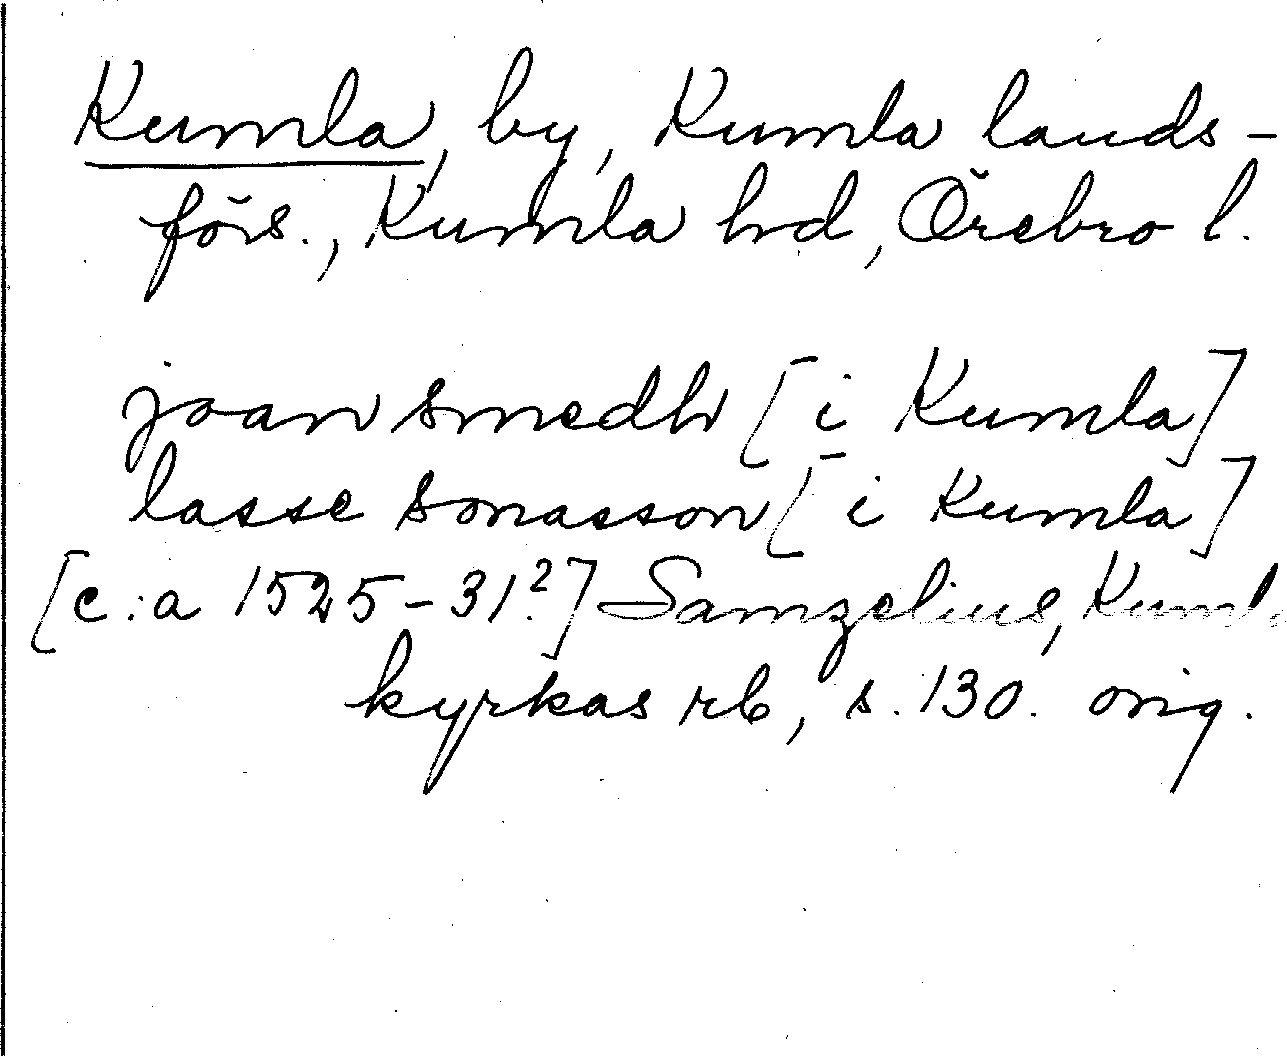 Kumla, by, Kumla lands-
förs., Kumla hd, Örebro l.
joan smedh [i Kumla]
lasse sonasson [i Kumla]
[c:a 1525-31?] Samzelius, Kumla
kyrkas rb, s. 130. orig.